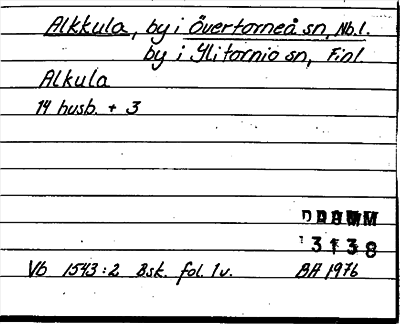 Alkkula, by i Övertorneå sn, Nb.l.
by i Ylitornio sn, Finl.
Alkula
14 husb. + 3
Vb 1543:2 Bsk. fol. 1v. BA 1976